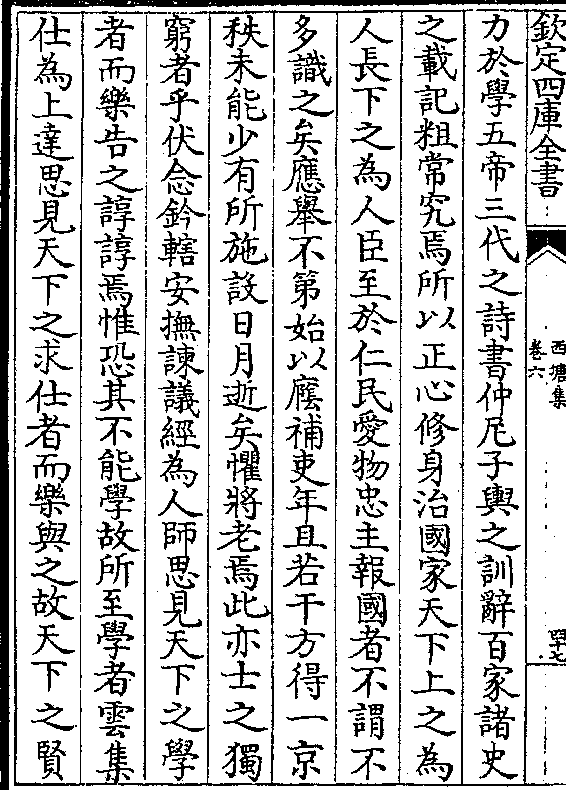 欽定四庫全書
西塘集
卷六
四十七
力於學五帝三代之詩書仲尼子輿之訓辭百家諸史
之載記粗常究焉所以正心修身治國家天下上之為
人長下之為人臣至於仁民愛物忠主報國者不謂不
多識之矣應舉不第始以廕補吏年且若干方得一京
秩未能少有所施設日月逝矣懼將老焉此亦士之獨
窮者乎伏念鈐轄安撫諫議經為人師思見天下之學
者而樂告之諄諄焉惟恐其不能學故所至學者雲集
仕為上達思見天下之求仕者而樂與之故天下之賢